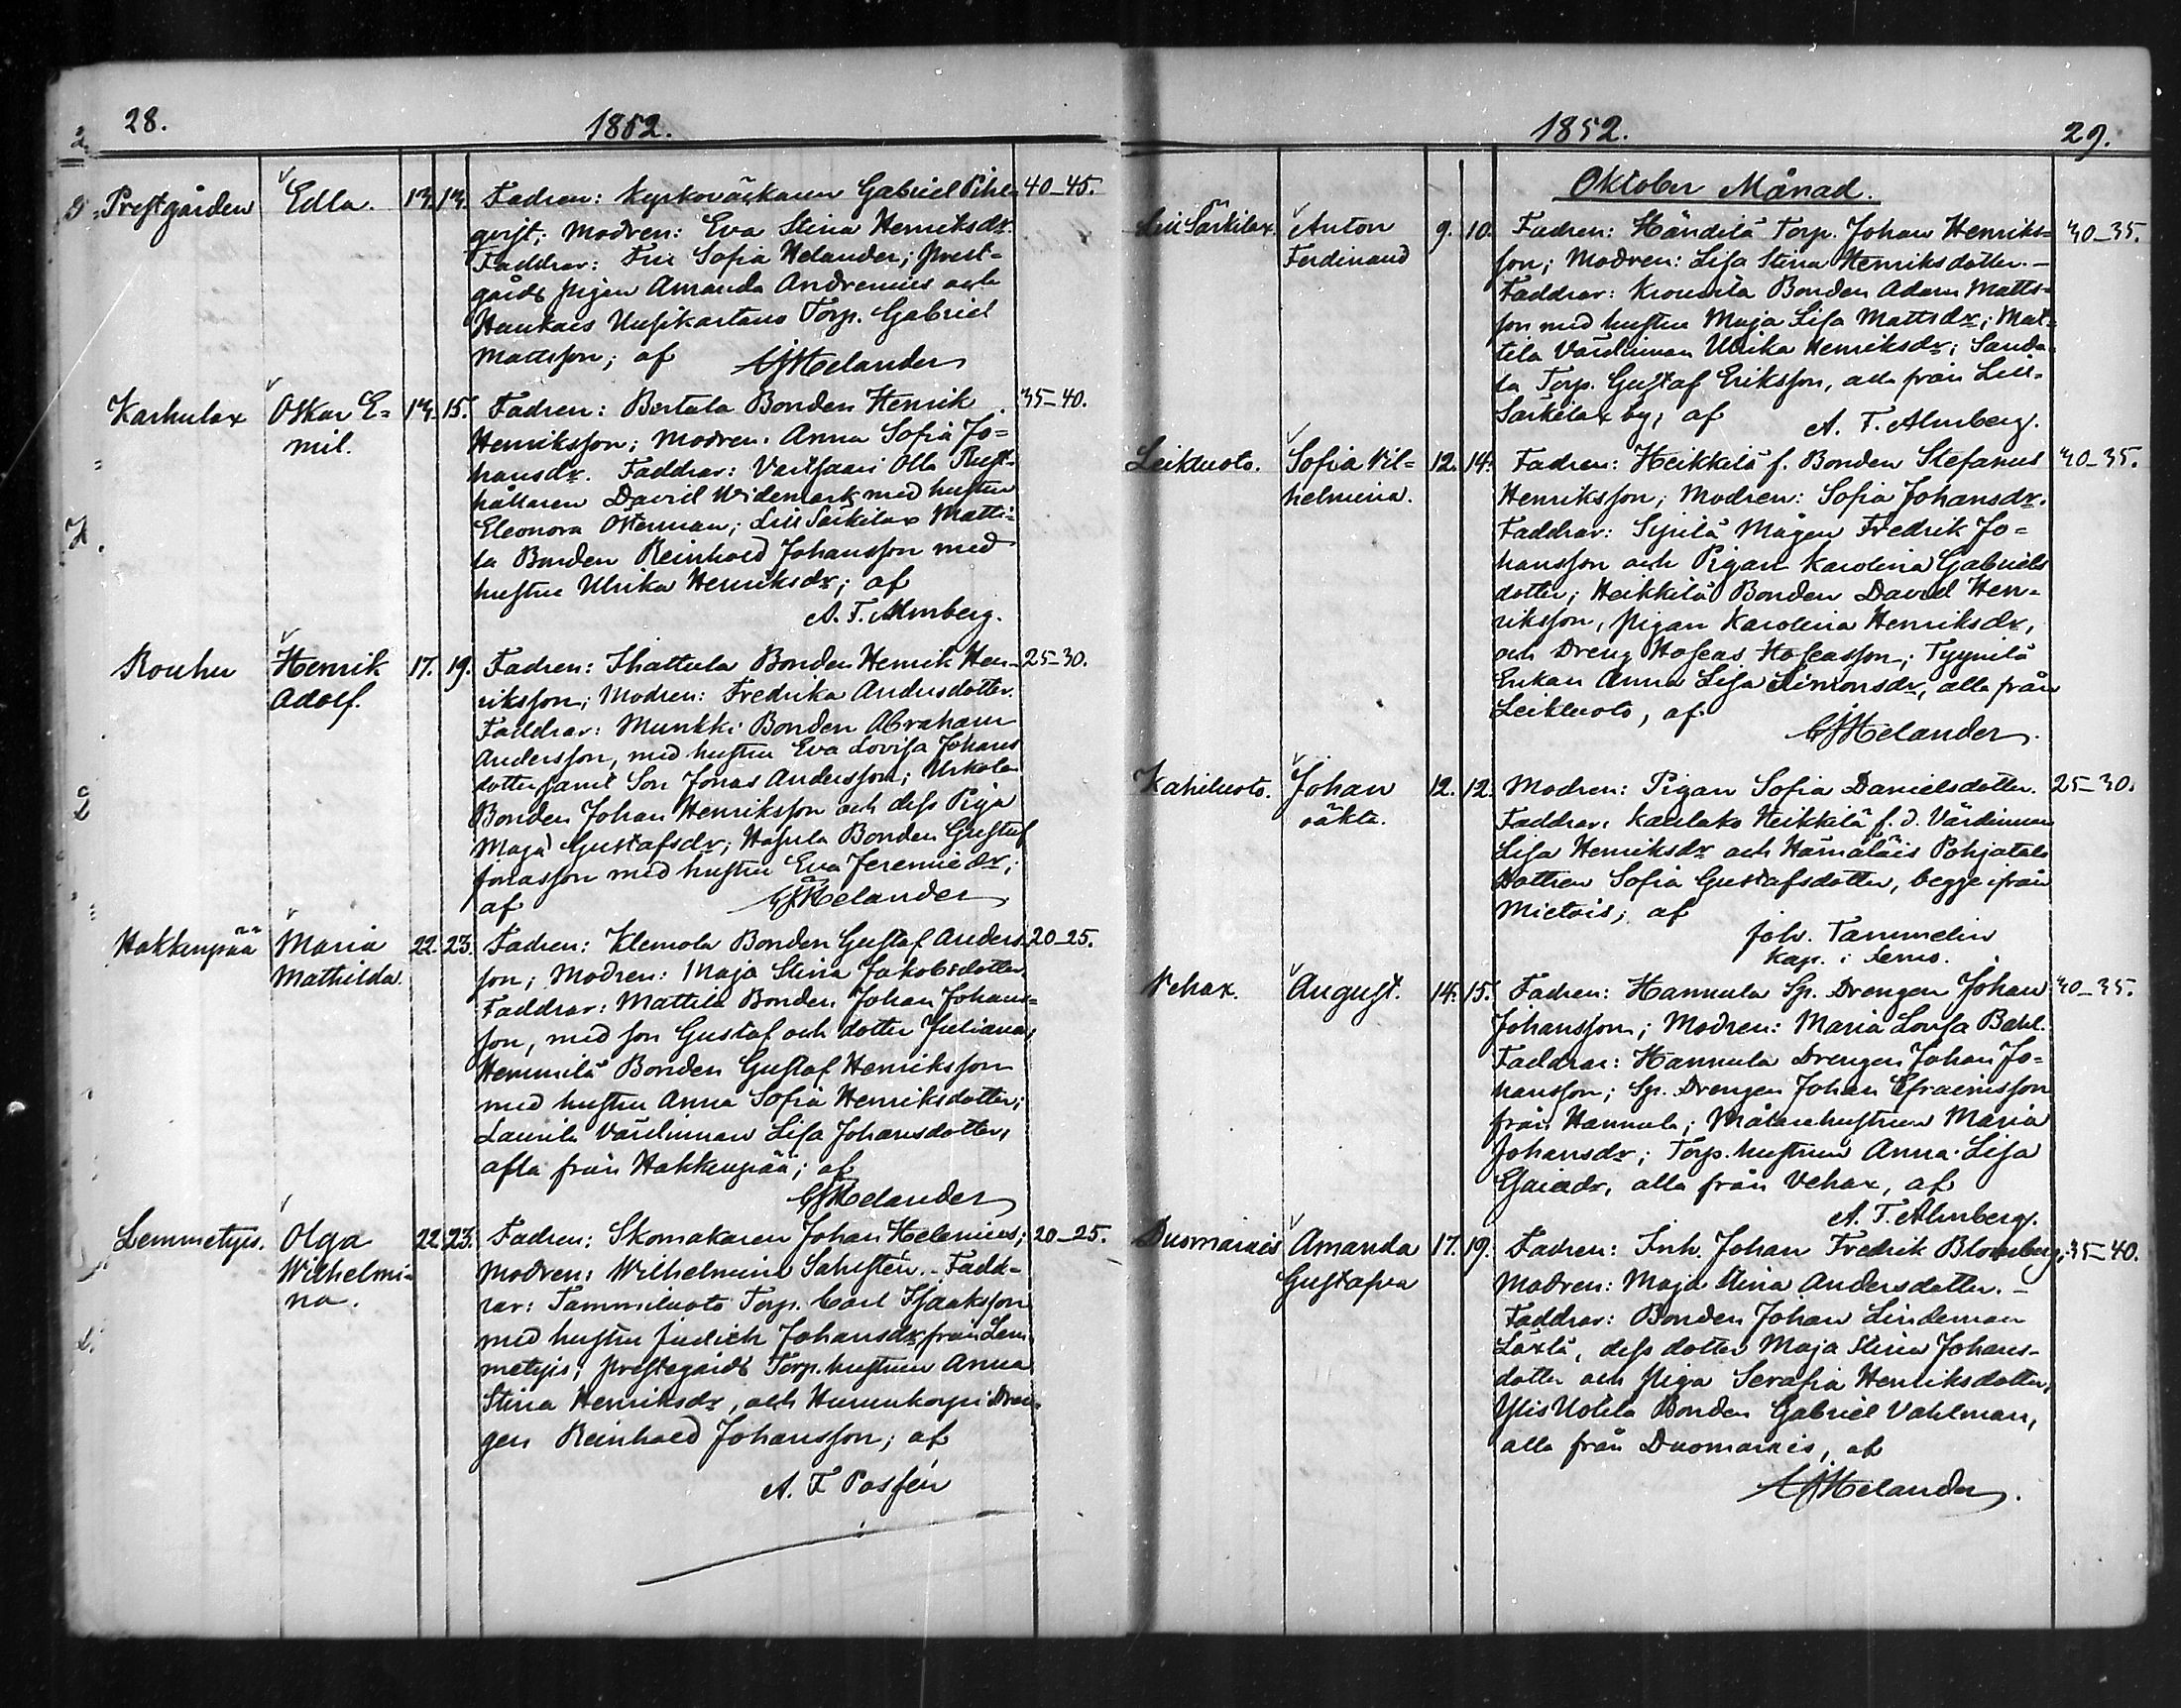 28.
1852.
Prestgården
Edla.
13.
14.
Fadren: Kyrkoväktaren Gabriel Pihl-
qvist; Modren: Eva Stina Henriksdr.
Faddrar: Fru Sofia Helander; Prest-
gårds pigan Amanda Andrenius och
Haukais Uusikartano Torp. Gabriel
Mattsson; af Helander
40-45.
Karhulax
Oskar E=
mil.
14.
15.
Fadren: Bertala Bonden Henrik
Henriksson; Modren: Anna Sofia Jo=
hansdr. Faddrar: Vartsaari Olla Rust-
hållaren David Widemark med hustru
Eleonora Österman; Lill Särkilax Matti-
la Bonden Reinhold Johansson med
hustru Ulrika Henriksdr; af
A. F. Almberg.
35-40.
Rouhu
Henrik
Adolf.
17.
19.
Fadren: Thattula Bonden Henrik Hen-
riksson; Modren: Fredrika Andersdotter.
Faddrar: Munkki Bonden Abraham
Andersson, med hustru Eva Lovisa Johans
dotter samt Son Jonas Andersson; Urkola
Bonden Johan Henriksson och dess Piga
Maja Gustafsdr; Hasula Bonden Gustaf
Jonasson med hustru Eva Jeremiedr;
af Helander
25-30.
Hakkenpää
Maria
Mathilda.
22.
23.
Fadren: Klemola Bonden Gustaf Anders-
son; Modren: Maja Stina Jakobsdotter.
Faddrar: Mattila Bonden Johan Johans=
son, med son Gustaf och dotter Juliana;
Hemmilä Bonden Gustaf Henriksson
med hustru Anna Sofia Henriksdotter;
Laurila Värdinnan Lisa Johansdotter,
alla från Hakkenpää; af
Helander
20-25.
Lemmetyis.
Olga
Wilhelmi-
na.
22.
23.
Fadren: Skomakaren Johan Helenius;
Modren: Wilhelmina Sahlstén. Fadd-
rar: Tammiluoto Torp. Carl Isaaksson
med hustru Judith Johansdr från Lem-
metyis; prestegårds Torp. hustrun Anna
Stina Henriksdr, och Hurunkorpi Dren-
gen Reinhold Johansson; af
A. F. Posfén
20-25.
1852.
29.
Oktober Månad.
Lill Särkilax.
Anton
Ferdinand
9.
10.
Fadren: Händilä Torp. Johan Henriks=
son; Modren: Lisa Stina Henriksdotter. -
Faddrar: Krouvila Bonden Adam Matts-
son med hustru Maja Lisa Mattsdr; Mat-
tila Värdinnan Ulrika Henriksdr; Sanda-
la Torp. Gustaf Eriksson, alla från Lill-
Särkilax by, af A. F. Almberg.
30-35.
Leikluoto.
Sofia Vil=
helmina.
12.
14.
Fadren: Heikkilä f. Bonden Stefanus
Henriksson; Modren: Sofia Johansdr.
Faddrar: Syrilä Mågen Fredrik Jo=
hansson och Pigan Karolina Gabriels
dotter; Heikkilä Bonden David Hen-
riksson, Pigan Karolina Henriksdr,
och Dreng Hoseas Hoseasson; Tyynilä
Enkan Anna Lisa Simonsdr, alla från
Leikluoto, af
Helander.
30-35.
Kahiluoto.
Johan
oäkta.
12.
12.
Modren: Pigan Sofia Danielsdotter.
Faddrar: Kaulako Heikkilä f. d. Värdinnan
Lisa Henriksdr och Hämäläis Pohjatalo
Dottren Sofia Gustafsdotter, begge ifrån
Mietois; af
Joh. Tammelin
Kap. i Lemo.
25-30.
Vehax.
August.
14.
15.
Fadren: Hannula Sp. Drengen Johan
Johansson; Modren: Maria Lovisa Bahl.
Faddrar: Hannula Drengen Johan Jo=
hansson; Sp. Drengen Johan Efraimsson
från Hannula; Målarehustrun Maria
Johansdr; Torp. hustrun Anna Lisa
Esaiedr, alla från Vehax, af
A. F. Almberg.
30-35.
Duomarais
Amanda
Gustafva
17.
19.
Fadren: Inh. Johan Fredrik Blomberg;
Modren: Maja Stina Andersdotter. -
Faddrar: Bonden Johan Lindeman
Laxlä, dess dotter Maja Stina Johans-
dotter och Piga Serafia Henriksdotter,
Ylis Uotila Bonden Gabriel Vahlman,
alla från Duomarais, af
Helander.
35-40.